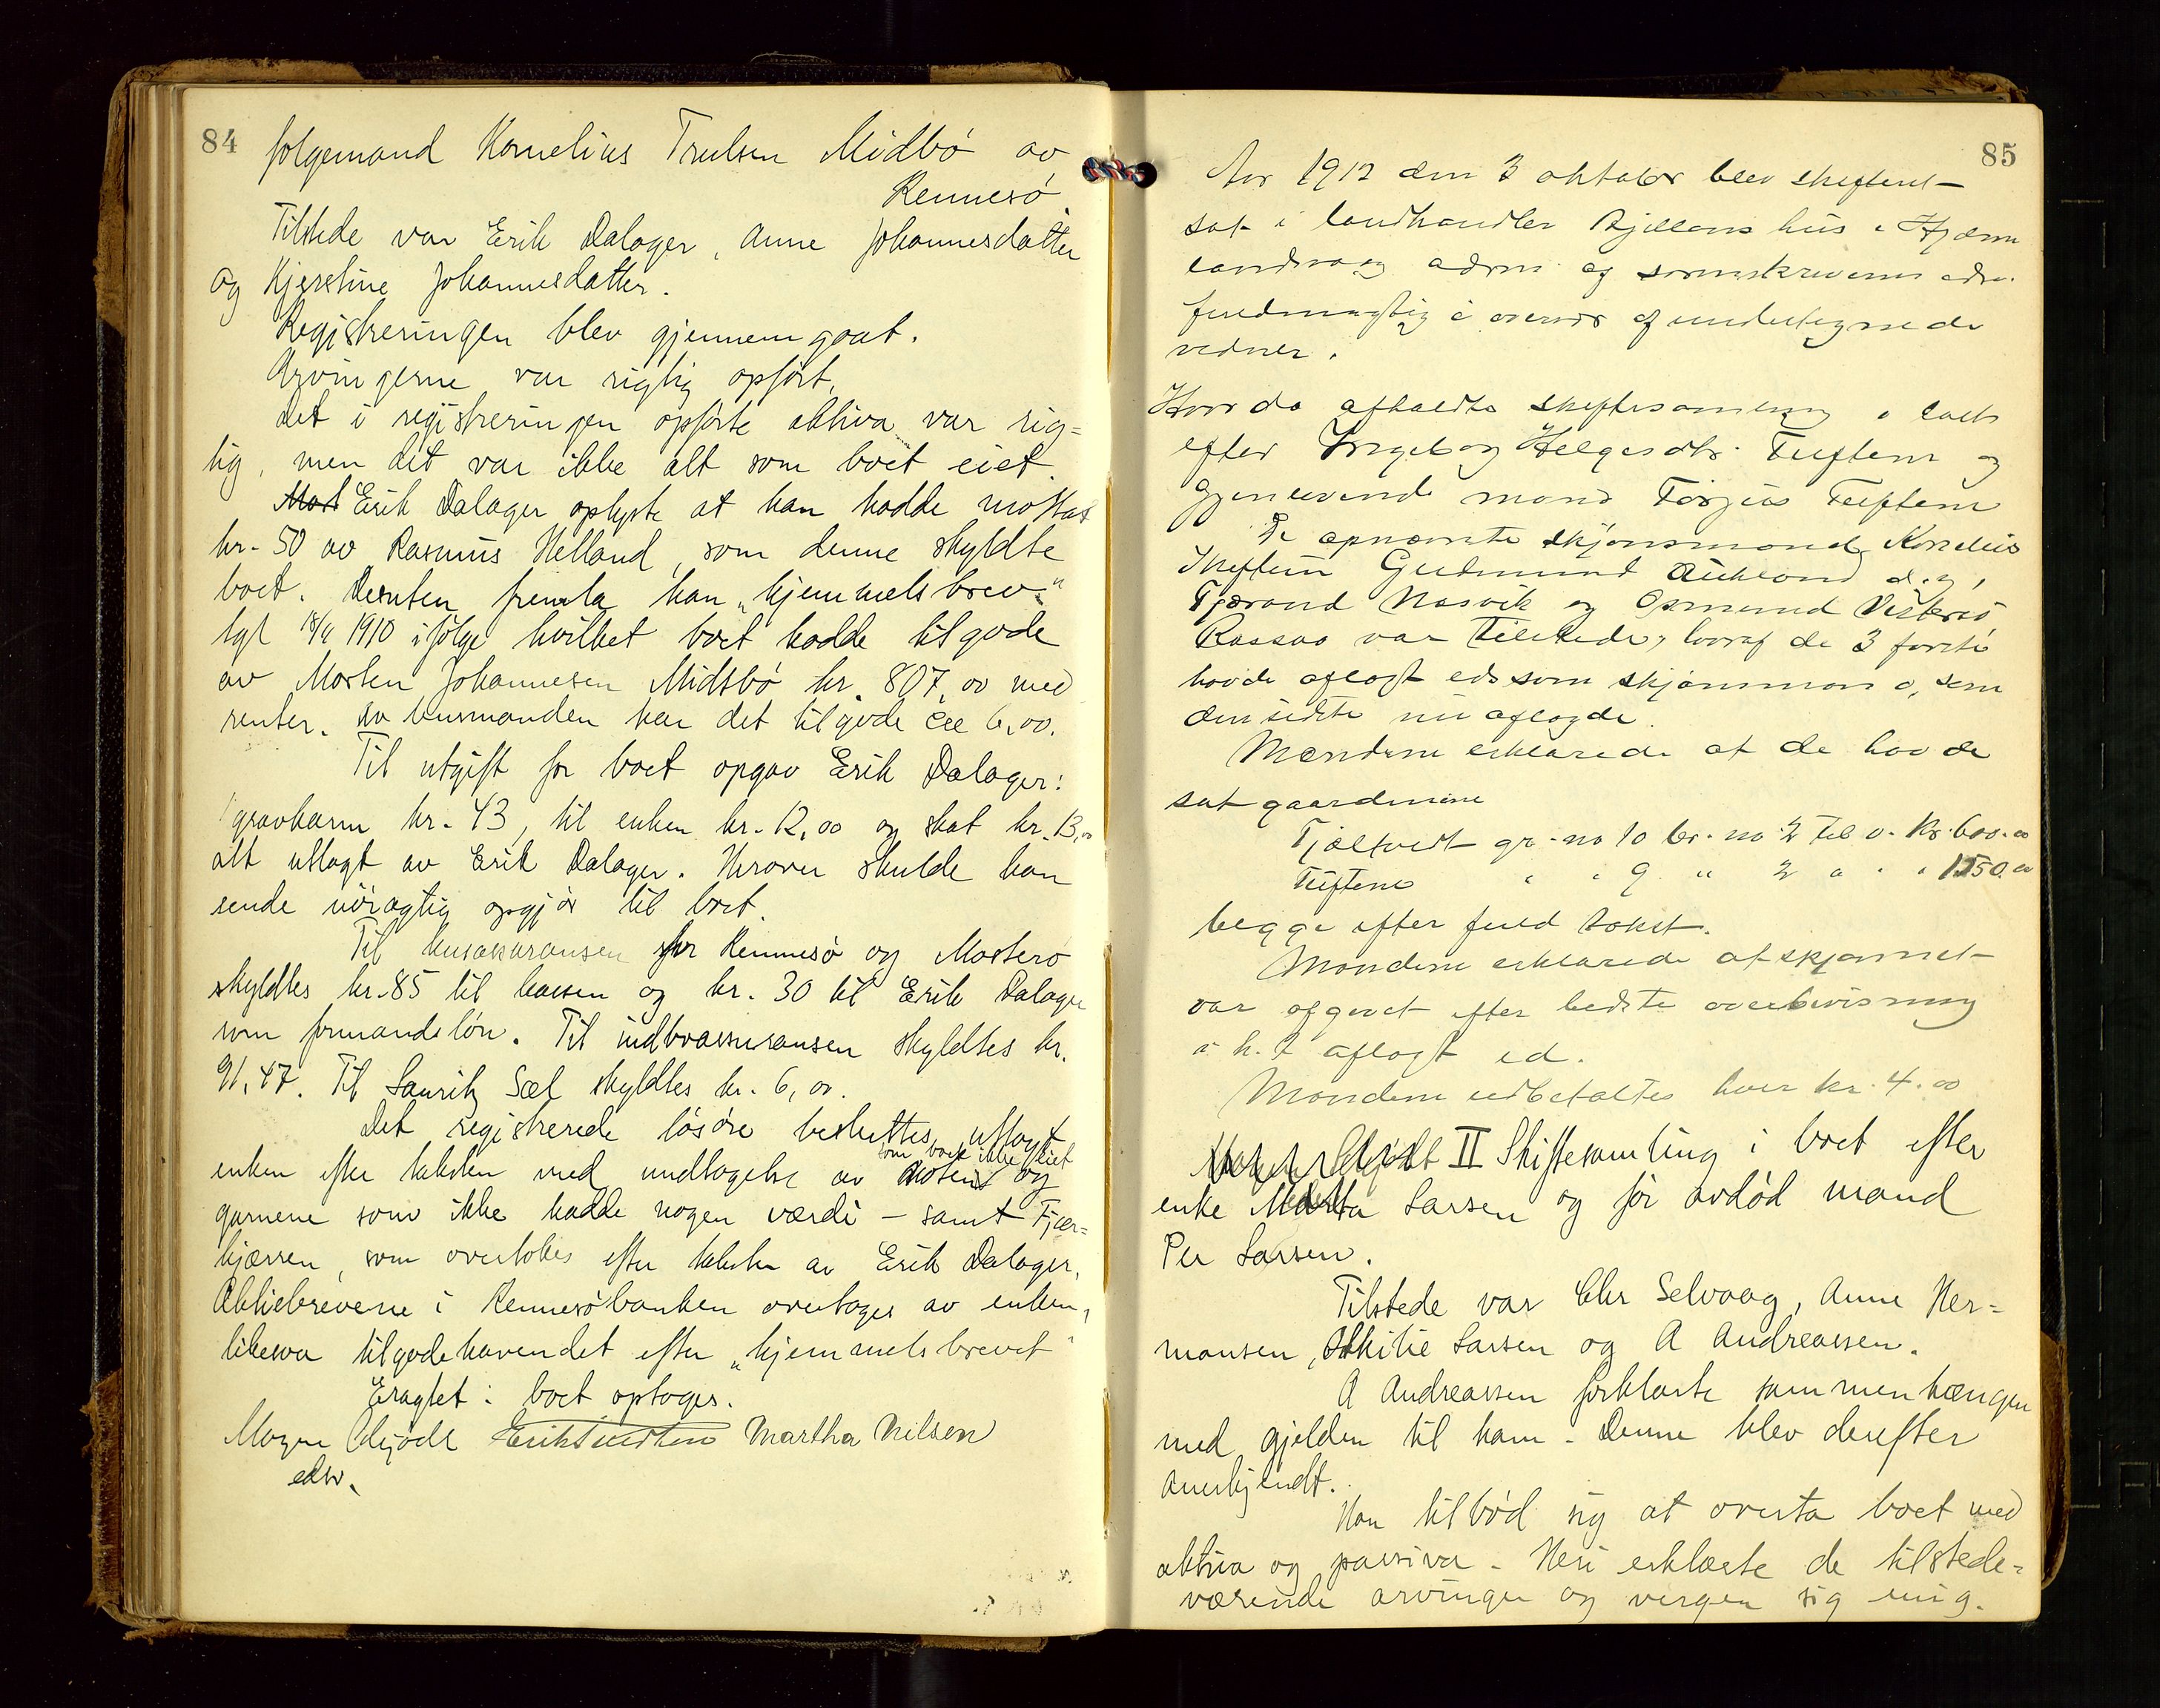 84
følgemand Kornelius Trulsen Midbø av
Rennesø.
Tilstede var Erik Dalager, Anne Johannesdatter
og Kjerstine Johannesdatter.
Registreringen blev gjennemgaat.
Arvingerne var rigtig opført.
Det i registreringen opførte aktiva var rig=
tig, men det var ikke alt som boet eiet.
Erik Dalager oplyste at han hadde mottat
kr. 50 av Rasmus Helland, som denne skyldte
boet. Desuten fremla han „hjemmelsbrev"
tgl 18/4 1910 ifølge hvilket boet hadde tilgode
av Morten Johannesen Midtbø kr. 807,00 med
renter. Av husmanden har det tilgode 6,00.
Til utgift for boet opgav Erik Dalager:
gravkarm kr. 43, til enken kr. 12,00 og skat kr. 13,00
alt utlagt av Erik Dalager. Herover skulde han
sende nøiagtig opgjør til boet.
Til husassuransen for Rennesø og Mosterø
skyldtes kr. 85 til kassen og kr. 30 til Erik Dalager
som formandsløn. Til indboassuransen skyldtes kr.
91,47. Til Lauritz Sæl skyldtes kr. 6,00.
Det registrerede løsøre besluttes utlagt
som boet ikke eiet
enken efter taksten med undtagelse av noten og
garnene som ikke hadde nogen værdi – samt Fjær=
kjærren, som overtokes efter taksten av Erik Dalager.
Aktiebrevene i Rennesøbanken overtages av enken,
likesaa tilgodehavendet efter „hjemmelsbrevet"
Eragtet: boet optages.
Mogne Gjødt Martha Nilsen
edsv.
85
Aar 1912 den 3 oktober blev skifteret-
sat i landhandler Kjillans hus i Hjelme
landsvaag adm. af sorenskriverens edsv.
fuldmægtig i overvær af undertegnede
vidner.
Hvor da afholdtes skiftesamling i boet
efter Ingeborg Helgesdtr. Tuftene og
gjenlevende mand Torjus Tuftene
De opnævnte skjønsmænd, Kornelius
Gudmund d.y.,
Tjerand Nasvik og Osmund
var tilstede, hvoraf de 3 første
havde aflagt ed som skjønsmænd, som
den sidste nu aflagde.
Mændene erklærede at de havde
sat gaardene
gr. no 10 br. no 2 til v. Kr. 600.00
Tuftene " " 9 " 2 " " " 1550.00
begge efter fuld takst.
Mændene erklærede at skjønnet
var afgivet efter bedste overbevisning
i h. t. aflagt ed.
Mændene udbetaltes hver kr. 4.00
II Skiftesamling i boet efter
enke Marta Larsen og før avdød mand
Per Larsen.
Tilstede var Chr Selvaag, Anne Her=
mansen, Larsen og A Andreassen.
A Andreassen forklarte sammenhængen
med gjelden til ham. Denne blev derefter
anerkjendt.
Han tilbød sig at overta boet med
aktiva og passiva. Heri erklærte de tilstede-
værende arvinger og vergen sig enig.